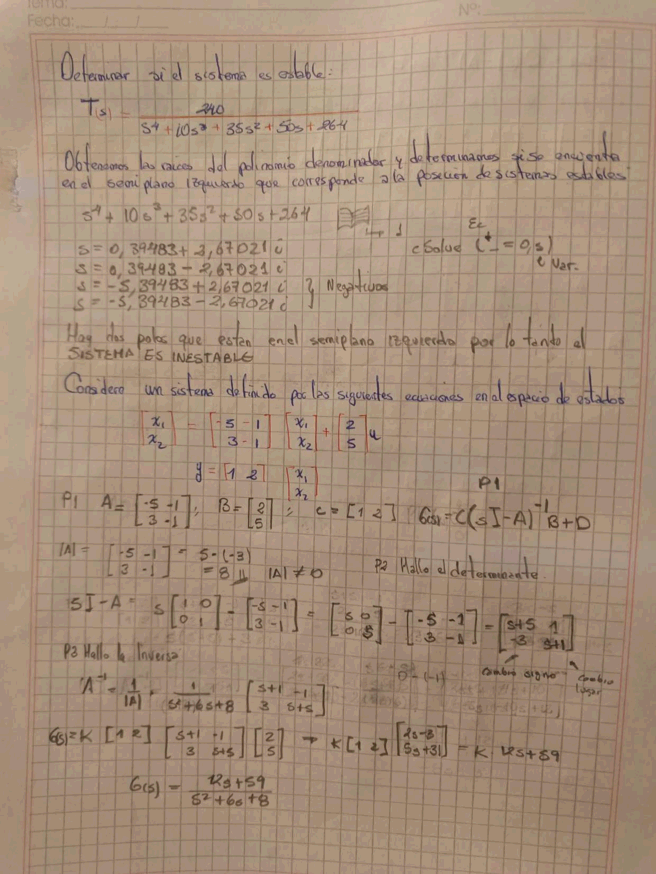 Tema:
Fecha: / /
Nº:
Determinar si el sistema es estable:
T(s) = 240 / s⁴ + 10s³ + 35s² + 50s + 264
Obtenemos las raices del polinomio denominador y determinamos si se encuentra
en el semiplano Izquierdo que corresponde a la posición de sistemas estables
s⁴ + 10s³ + 35s² + 50s + 264
↳ 1
Ec
cSolve ( _ = 0, s)
Var.
s = 0,39483 + 3,67021 i
s = 0,39483 - 2,67021 i
s = -5,39483 + 2,67021 i
s = -5,39483 - 2,67021 i
} Negativos
Hay dos polos que esten en el semiplano izquierdo por lo tanto el
SISTEMA ES INESTABLE
Considero un sistema definido por las siguientes ecuaciones en el espacio de estados
[x₁ x₂] = [-5 -1 3 -1] [x₁ x₂] + [2 5] u
y = [1 2] [x₁ x₂]
P1
P1 A = [-5 -1 3 -1] ; B = [2 5] ; C = [1 2] G(s) = C(sI-A)⁻¹B+D
|A| = [-5 -1 3 -1] = 5-(-3) = 8 |A| ≠ 0
P2 Hallo el determinante
SI-A = s[1 0 0 1] - [-5 -1 3 -1] = [s 0 0 s] - [-5 -1 3 -1] = [s+5 1 -3 s+1]
P3 Hallo la Inversa
0-(-1)
cambio signo
cambio lugar
A⁻¹ = 1/|A| = 1/s²+6s+8 [s+1 -1 3 s+5]
G(s) = K [1 2] [s+1 -1 3 s+5] [2 5] → K [1 2] [2s-3 5s+31] = K 12s+59
G(s) = 12s+59 / s²+6s+8